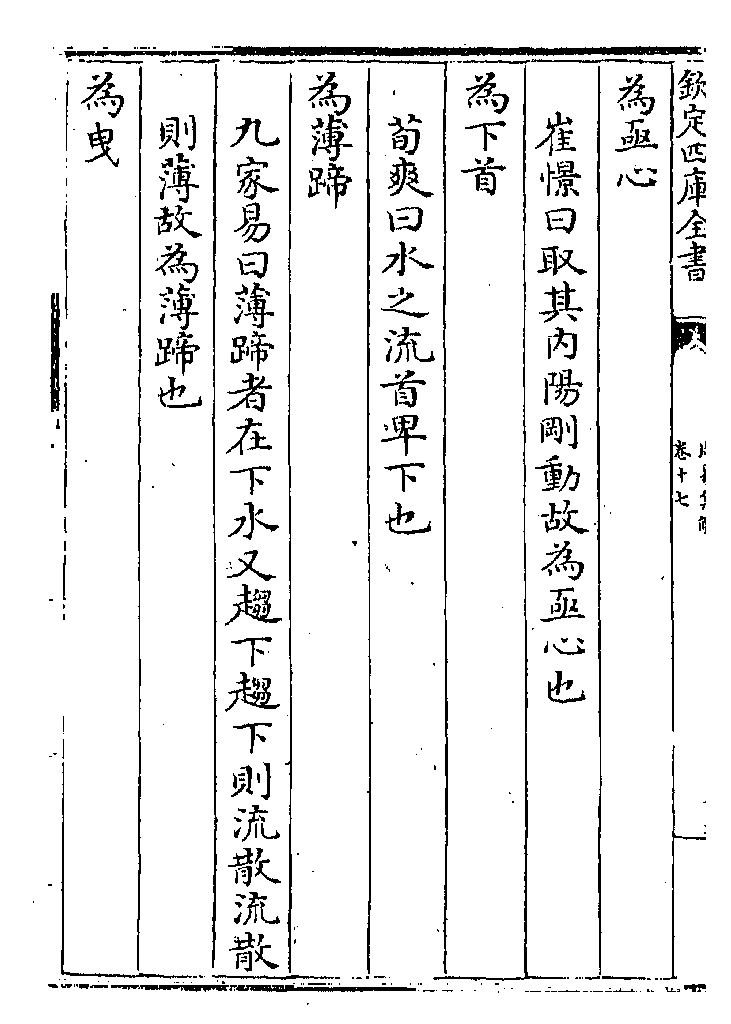 欽定四庫全書
卷十七
為亟心
崔憬曰取其內陽剛動故為亟心也
為下首
荀爽曰水之流首卑下也
為薄蹄
九家易曰薄蹄者在下水又趨下趨下則流散流散
則薄故為薄蹄也
為曳